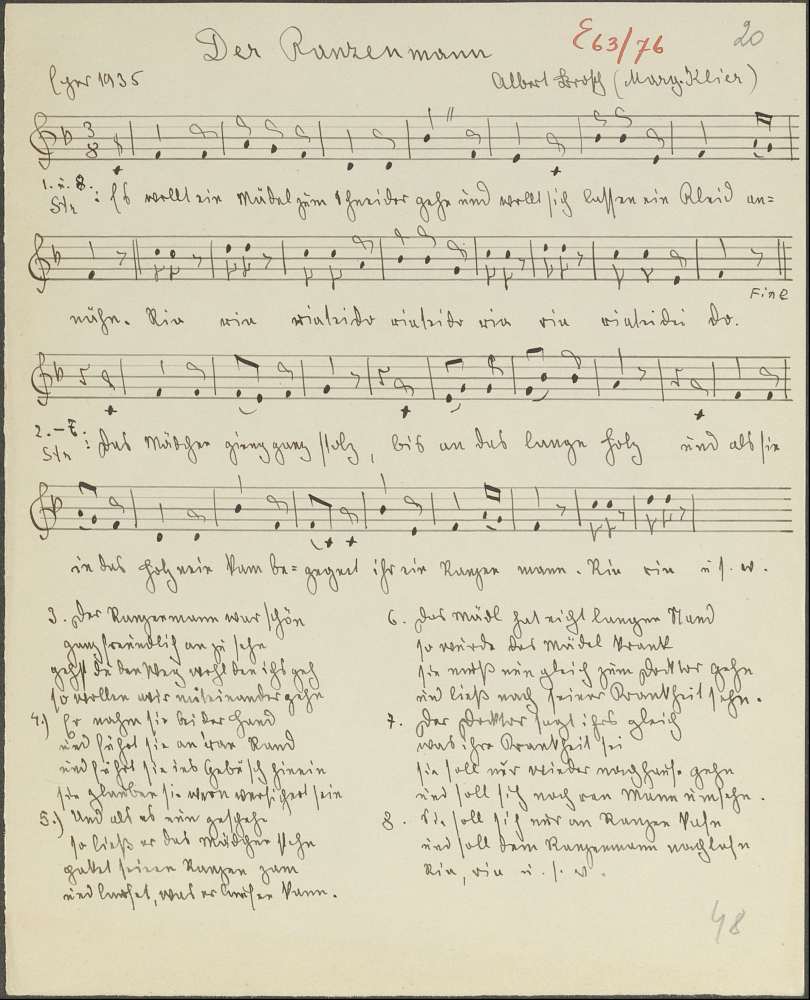 E63/76 20
Der Ranzenmann
Eger 1935 Albert Brosch (Marg. Klier)
3
8
1. u. 8. Str : Es wollt ein Mädel zum Schneider gehn und wollt sich lassen ein Kleid an=
Fine
nähn. Ria ria riateido riateido ria ria riateidei do.
2. – 7. Str : Das Mädchen gieng ganz stolz, bis an das lange Holz und als sie
in das Holz nein kam be= gegnet ihr ein Ranzen mann. Ria ria u. s. w.
3. Der Ranzenmann war schön
ganz freundlich anzusehn
gehst du den Weg wohl den ichs geh
so wollen wir miteinander gehn
4.) Er nahm sie bei der Hand
und führt sie an Rand
und führt sie ins Gebüsch hinein
sie glauben sie wern versichert sein
5.) Und als es nun geschehe
so ließ er das Mädchen stehn
packt seinen Ranzen zam
und lauft, was er laufen kann.
6. Das Mädl hat nicht langen Stand
so wurde das Mädel krank
sie muß nun gleich zum Doktor gehn
und ließ nach seiner Krankheit sehn.
7. Der Doktor sagt ihrs gleich
was ihre Krankheit sei
sie soll nur wieder nachhause gehn
und soll sich nach ran Mann umsehn.
8. Sie soll sich nur an Ranzen
und soll dem Ranzenmann nachlafn
Ria, ria u. s. w.
48